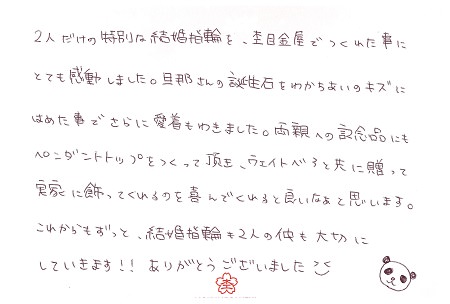 2人だけの特別な結婚指輪を、杢目金屋でつくれた事に
とても感動しました。旦那さんの誕生石をわかちあいのキズに
はめた事でさらに愛着もわきました。両親への記念品にも
ペンダントトップをつくって頂き、ウェイトベアと共に贈って
実家に飾ってくれるのを喜んでくれると良いなぁと思います。
これからもずっと、結婚指輪も2人の仲も大切に
していきます!! ありがとうございました